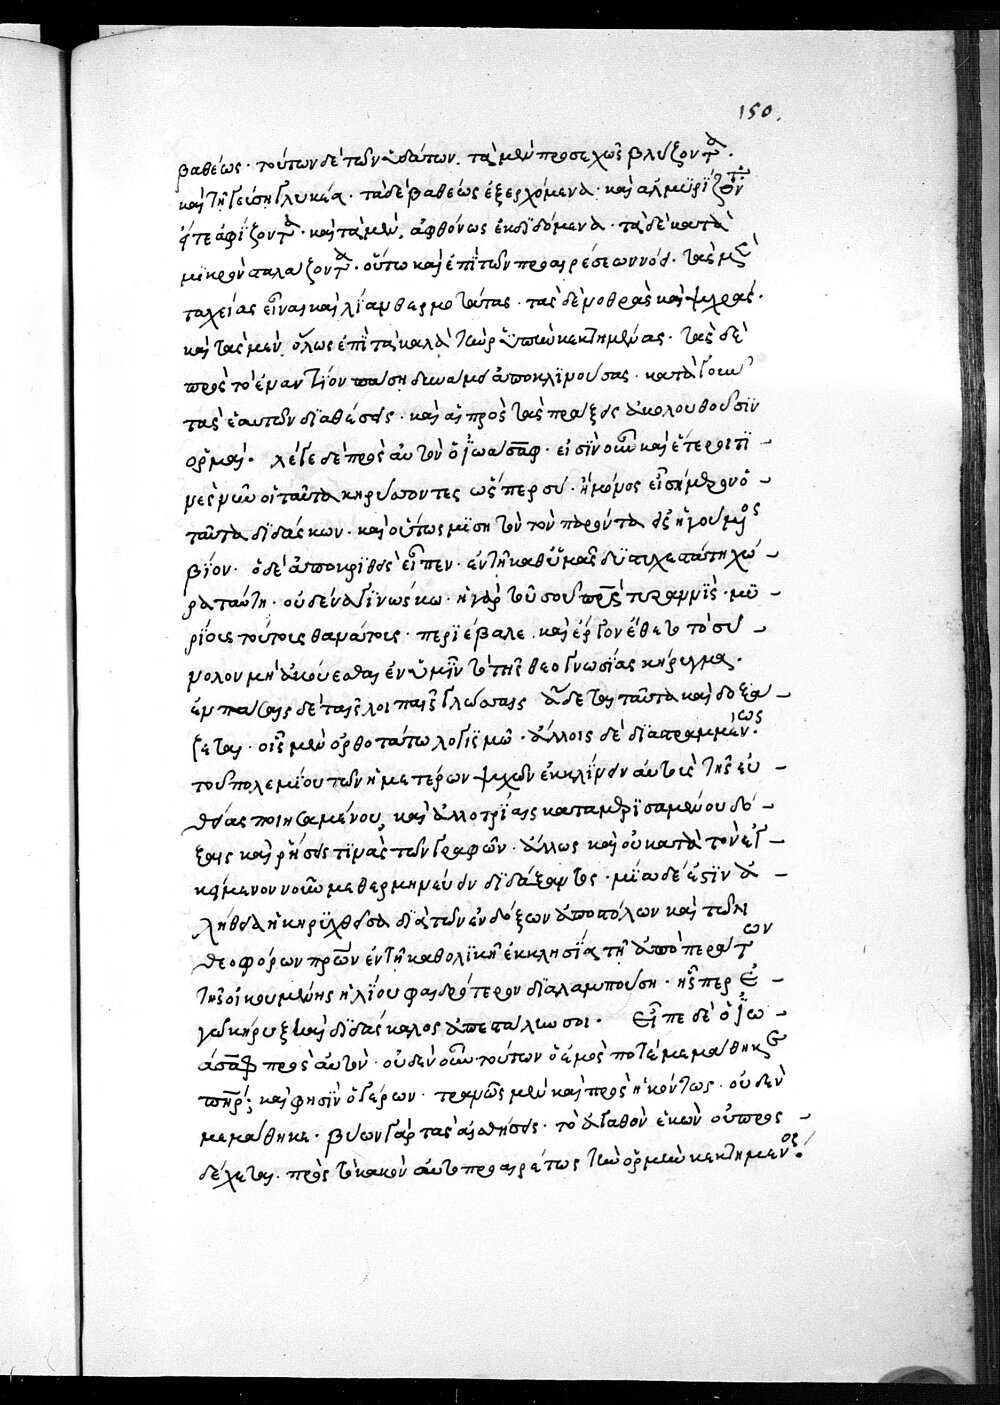 150.
βαθέως· τούτων δὲ τῶν ὑδάτων. τὰ μὲν προσεχῶς βλύζοντα·
καὶ τῇ γεύσῃ γλυκέα· τὰ δὲ βαθέως ἐξερχόμενα· καὶ ἁλμυρίζοντα
ἤτε ἀφίζοντα· καὶ τὰ μὲν, ἀφθόνως ἐκδιδόμενα· τὰ δὲ κατὰ
μϊκρὸν σταλάζοντα· οὕτω καὶ ἐπὶ τῶν προαιρέσεων νόει· τὰς μὲν
ταχείας εἶναι καὶ λίαν θερμοτάτας· τὰς δὲ νοθρὰς καὶ ψυχράς·
καὶ τὰς μὲν, ὅλως ἐπὶ τὰ καλὰ τὴν ῥοπὴν κεκτημένας· τὰς δὲ
πρὸς τὸ ἐναντίον πάσῃ δυνάμει ἀποκλινούσας· κατὰ γοῦν
τὰς ἑαυτῶν διαθέσεις· καὶ αἱ πρὸς τὰς πράξεις ἀκολουθοῦσιν
ὁρμαί· λέγει δὲ πρὸς αὐτὸν ὁ ἰωάσαφ· εἰσὶν οὖν καὶ ἕτεροι τι-
νὲς νῦν οἱ ταῦτα κηρύσσοντες ὥσπερ σύ· ἢ μόνος εἶ σήμερον ὁ-
ταῦτα διδάσκων· καὶ οὕτως μισητὸν τὸν παρόντα ἐξηγούμενος
βίον· ὁ δὲ ἀποκριθεὶς εἶπεν· ἐν τῇ καθ' ὑμᾶς δυστυχεστάτῃ χώ-
ρα ταύτῃ· οὐδένα γινώσκω· ἡ γὰρ τοῦ σοῦ πρς τυραννὶς· μυ-
ρίοις τούτοις θανάτοις· περιέβαλε. καὶ ἔργον ἔθετο τὸ σύ-
νολον μὴ ἀκούεσθαι ἐν ὑμῖν τὸ τῆς θεογνωσίας κήρυγμα·
ἐν πάσαις δὲ ταῖς λοιπαῖς γλώσσαις ᾅδεται ταῦτα καὶ δοξά-
ζεται· οἷς μὲν ὀρθοτάτω λογισμῷ· ἄλλοις δὲ διεστραμμένως·
τοῦ πολεμίου τῶν ἡμετέρων ψυχῶν ἐκκλίνειν αὐτοὺς τῆς εὐ-
θείας ποιησαμένου, καὶ ἀλλοτρίαις καταμερισαμένου δό-
ξαις καὶ ῥήσεις τινὰς τῶν γραφῶν· ἄλλως καὶ οὐ κατὰ τὸν ἐγ-
κείμενον νοῦν μεθερμηνεύειν διδάξαντος· μία δέ ἐστὶν ἀ-
λήθεια ἡ κηρυχθεῖσα διὰ τῶν ἐνδόξων ἀποστόλων καὶ τῶν
θεοφόρων πρων ἐν τῇ καθολικῇ ἐκκλησίᾳ τῇ ἀπὸ περάτων
τῆς οἰκουμένης ἡλίου φαιδρότερον διαλαμπούσῃ· ἧσπερ ἐ-
γὼ κῆρυξ καὶ διδάσκαλος ἀπεστάλην σοι· Εἶπε δὲ ὁ ἰω-
άσαφ πρὸς αὐτόν· οὐδὲν οὖν τούτων ὁ ἐμός ποτε μεμάθηκε
πηρ; καὶ φησὶν ὁ γέρων· τρανῶς μὲν καὶ προσηκόντως· οὐδὲν
μεμάθηκε· βύων γὰρ τὰς αἰσθήσεις· τὸ ἀγαθὸν ἑκὼν οὐ προσ-
δέχεται· πρὸς τὸ κακὸν αὐτοπροαιρέτως τὴν ὁρμὴν κεκτημένος·